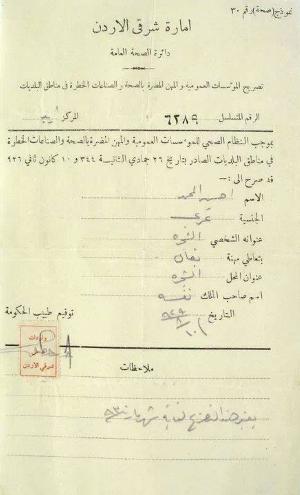 نموذج (صحة) رقم ٣٠
امارة شرقي الاردن
دائرة الصحة العامة
تصريح المؤسسات العمومية والمهن المضرة بالصحة والصناعات الخطرة في مناطق البلديات
الرقم المتسلسل ٦٢٨٩ المركز
بموجب النظام الصحي للمؤسسات العمومية والمهن المضرة بالصحة والصناعات الخطرة
في مناطق البلديات الصادر بتاريخ ٢٦ جمادي الثانية ٣٤٤ و ١٠ كانون ثاني ٩٢٦
قد صرح الى :—
الاسم احمد
الجنسية عربي
عنوانه الشخصي
بتعاطي مهنة
عنوان المحل
اسم صاحب الملك نفسه
التاريخ
توقيع طبيب الحكومة
واردات
شرقي الاردن
ملاحظات
يعتبر هذا التصريح لغاية